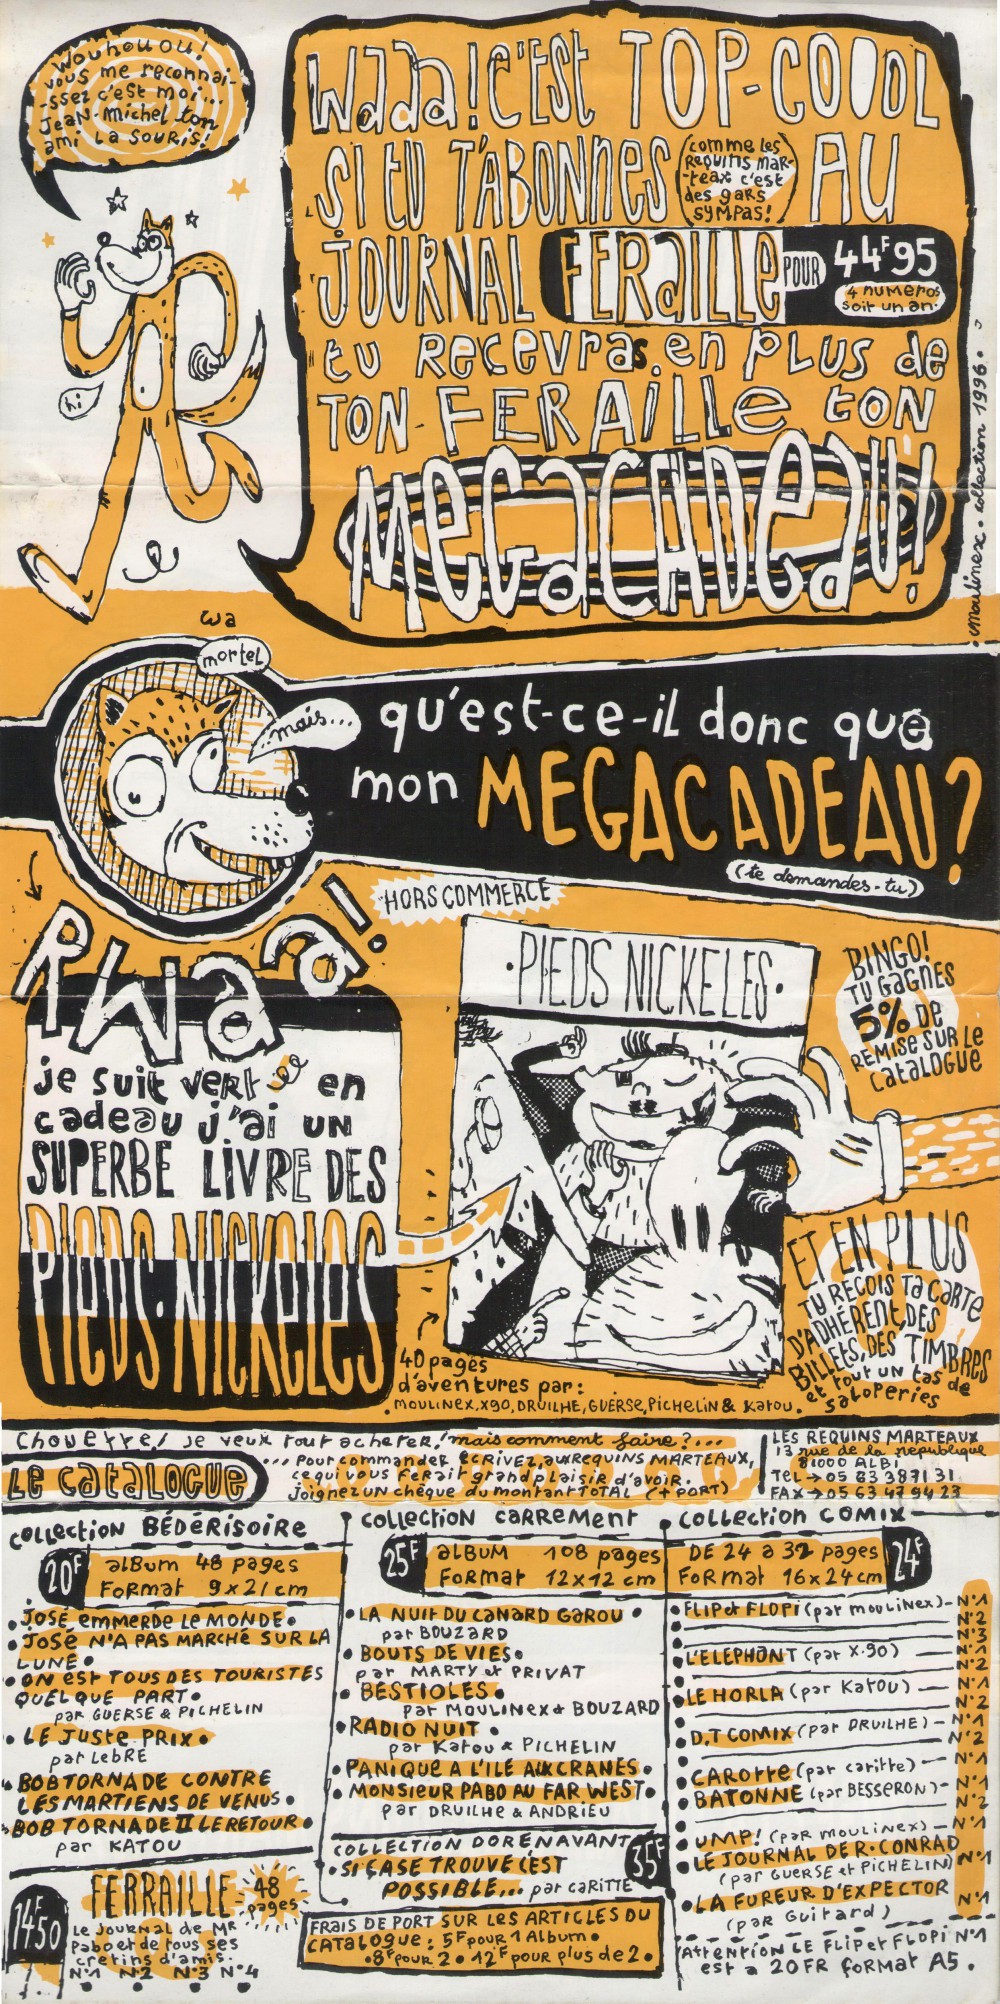 Wouhouou!
vous me reconnai-
-ssez c'est moi...
Jean-Michel ton
ami la souris!
hi
Waaa! c'est TOP-COOOL
si tu t'abonnes
(comme les
Requins mar-
-teax c'est
des gars
sympas!)
AU
JOURNAL FERAILLE POUR 44F95
4 numeros
soit un an.
tu Recevras en plus de
TON FERAILLE ton
MEGACADEAU!
moulinex. collection 1996.
wa
mortel
mais...
qu'est-ce-il donc que
mon MEGACADEAU?
(te demandes-tu)
HORS COMMERCE
RWaa!
je suit vert en
cadeau j'ai un
SUPERBE LIVRE DES
PIEDS-NICKELES
•PIEDS NICKELES•
BINGO!
TU GAGNES
5% DE
REMISE SUR LE
CATALOGUE
ET EN PLUS
TU REÇOIS TA CARTE
D'ADHÉRENT, DES
BILLETS, DES TIMBRES
et tout un tas de
saloperies
40 pages
d'aventures par:
MOULINEX, X90, DRUILHE, GUERSE, PICHELIN & Katou.
Chouette! je veux tout acheter! mais comment faire?...
LE CATALOGUE
...Pour commander ÉCRIVEZ, aux REQUINS MARTEAUX,
ce qui vous ferait grand plaisir d'avoir.
Joignez UN chèque du montant TOTAL (+ PORT)
LES REQUINS MARTEAUX
13 rue de la republique
81000 ALBI
TEL → 05 63 38 71 31
FAX → 05 63 47 94 23
collection BÉDÉRISOIRE
20F
album 48 pages
Format 9x21 cm
• JOSÉ emmerde LE MONDE •
• JOSÉ N'A PAS MARCHÉ SUR LA
LUNE •
• ON est TOUS DES TOURISTES
QUELQUE PART •
par GUERSE & PICHELIN
• LE Juste PRIX •
par LEBRE
• BOB TORNADE CONTRE
LES MARTIENS DE VENUS •
• BOB TORNADE II LE RETOUR •
par KATOU
14F50
FERRAILLE 48
pages
Le journal de MR
Pabo et de tous ses
cretins d'amis.
N°1 N°2 N°3 N°4
collection CARREMENT
25F
ALBUM 108 pages
FORMAT 12x12 cm
• LA NUIT DU CANARD GAROU •
par BOUZARD
• BOUTS DE VIES •
par MARTY et PRIVAT
• BESTIOLES •
par MOULINEX & BOUZARD
• RADIO NUIT •
par Katou & PICHELIN
• PANIQUE A L'ILE AUX CRANES •
• MONSIEUR PABO AU FAR WEST •
par DRUILHE & ANDRIEU
COLLECTION DORENAVANT
35F
• SI ÇA SE TROUVE C'EST
POSSIBLE... par CARITTE
FRAIS DE PORT SUR LES ARTICLES DU
CATALOGUE: 5F pour 1 Album •
• 8F pour 2 • 12F pour plus de 2 •
collection COMIX
24F
DE 24 a 32 pages
FORMAT 16x24cm
• FLIP et FLOPI (par moulinex) - N°1
N°2
N°3
• L'ELEPHANT (par X-90) N°1
N°2
• LE HORLA (par Katou) - N°1
N°2
• D.T COMIX (par DRUILHE) - N°1
N°2
• CAROTTE (par caritte) - N°1
• BATONNE (par BESSERON) - N°1
N°2
• UMP! (par moulinex) - N°1
• LE JOURNAL DE R. CONRAD
(par GUERSE et PICHELIN) N°1
• LA FUREUR D'EXPECTOR N°1
(par Guitard)
Attention LE FLIP et FLOPI N°1
est a 20 FR format A5.